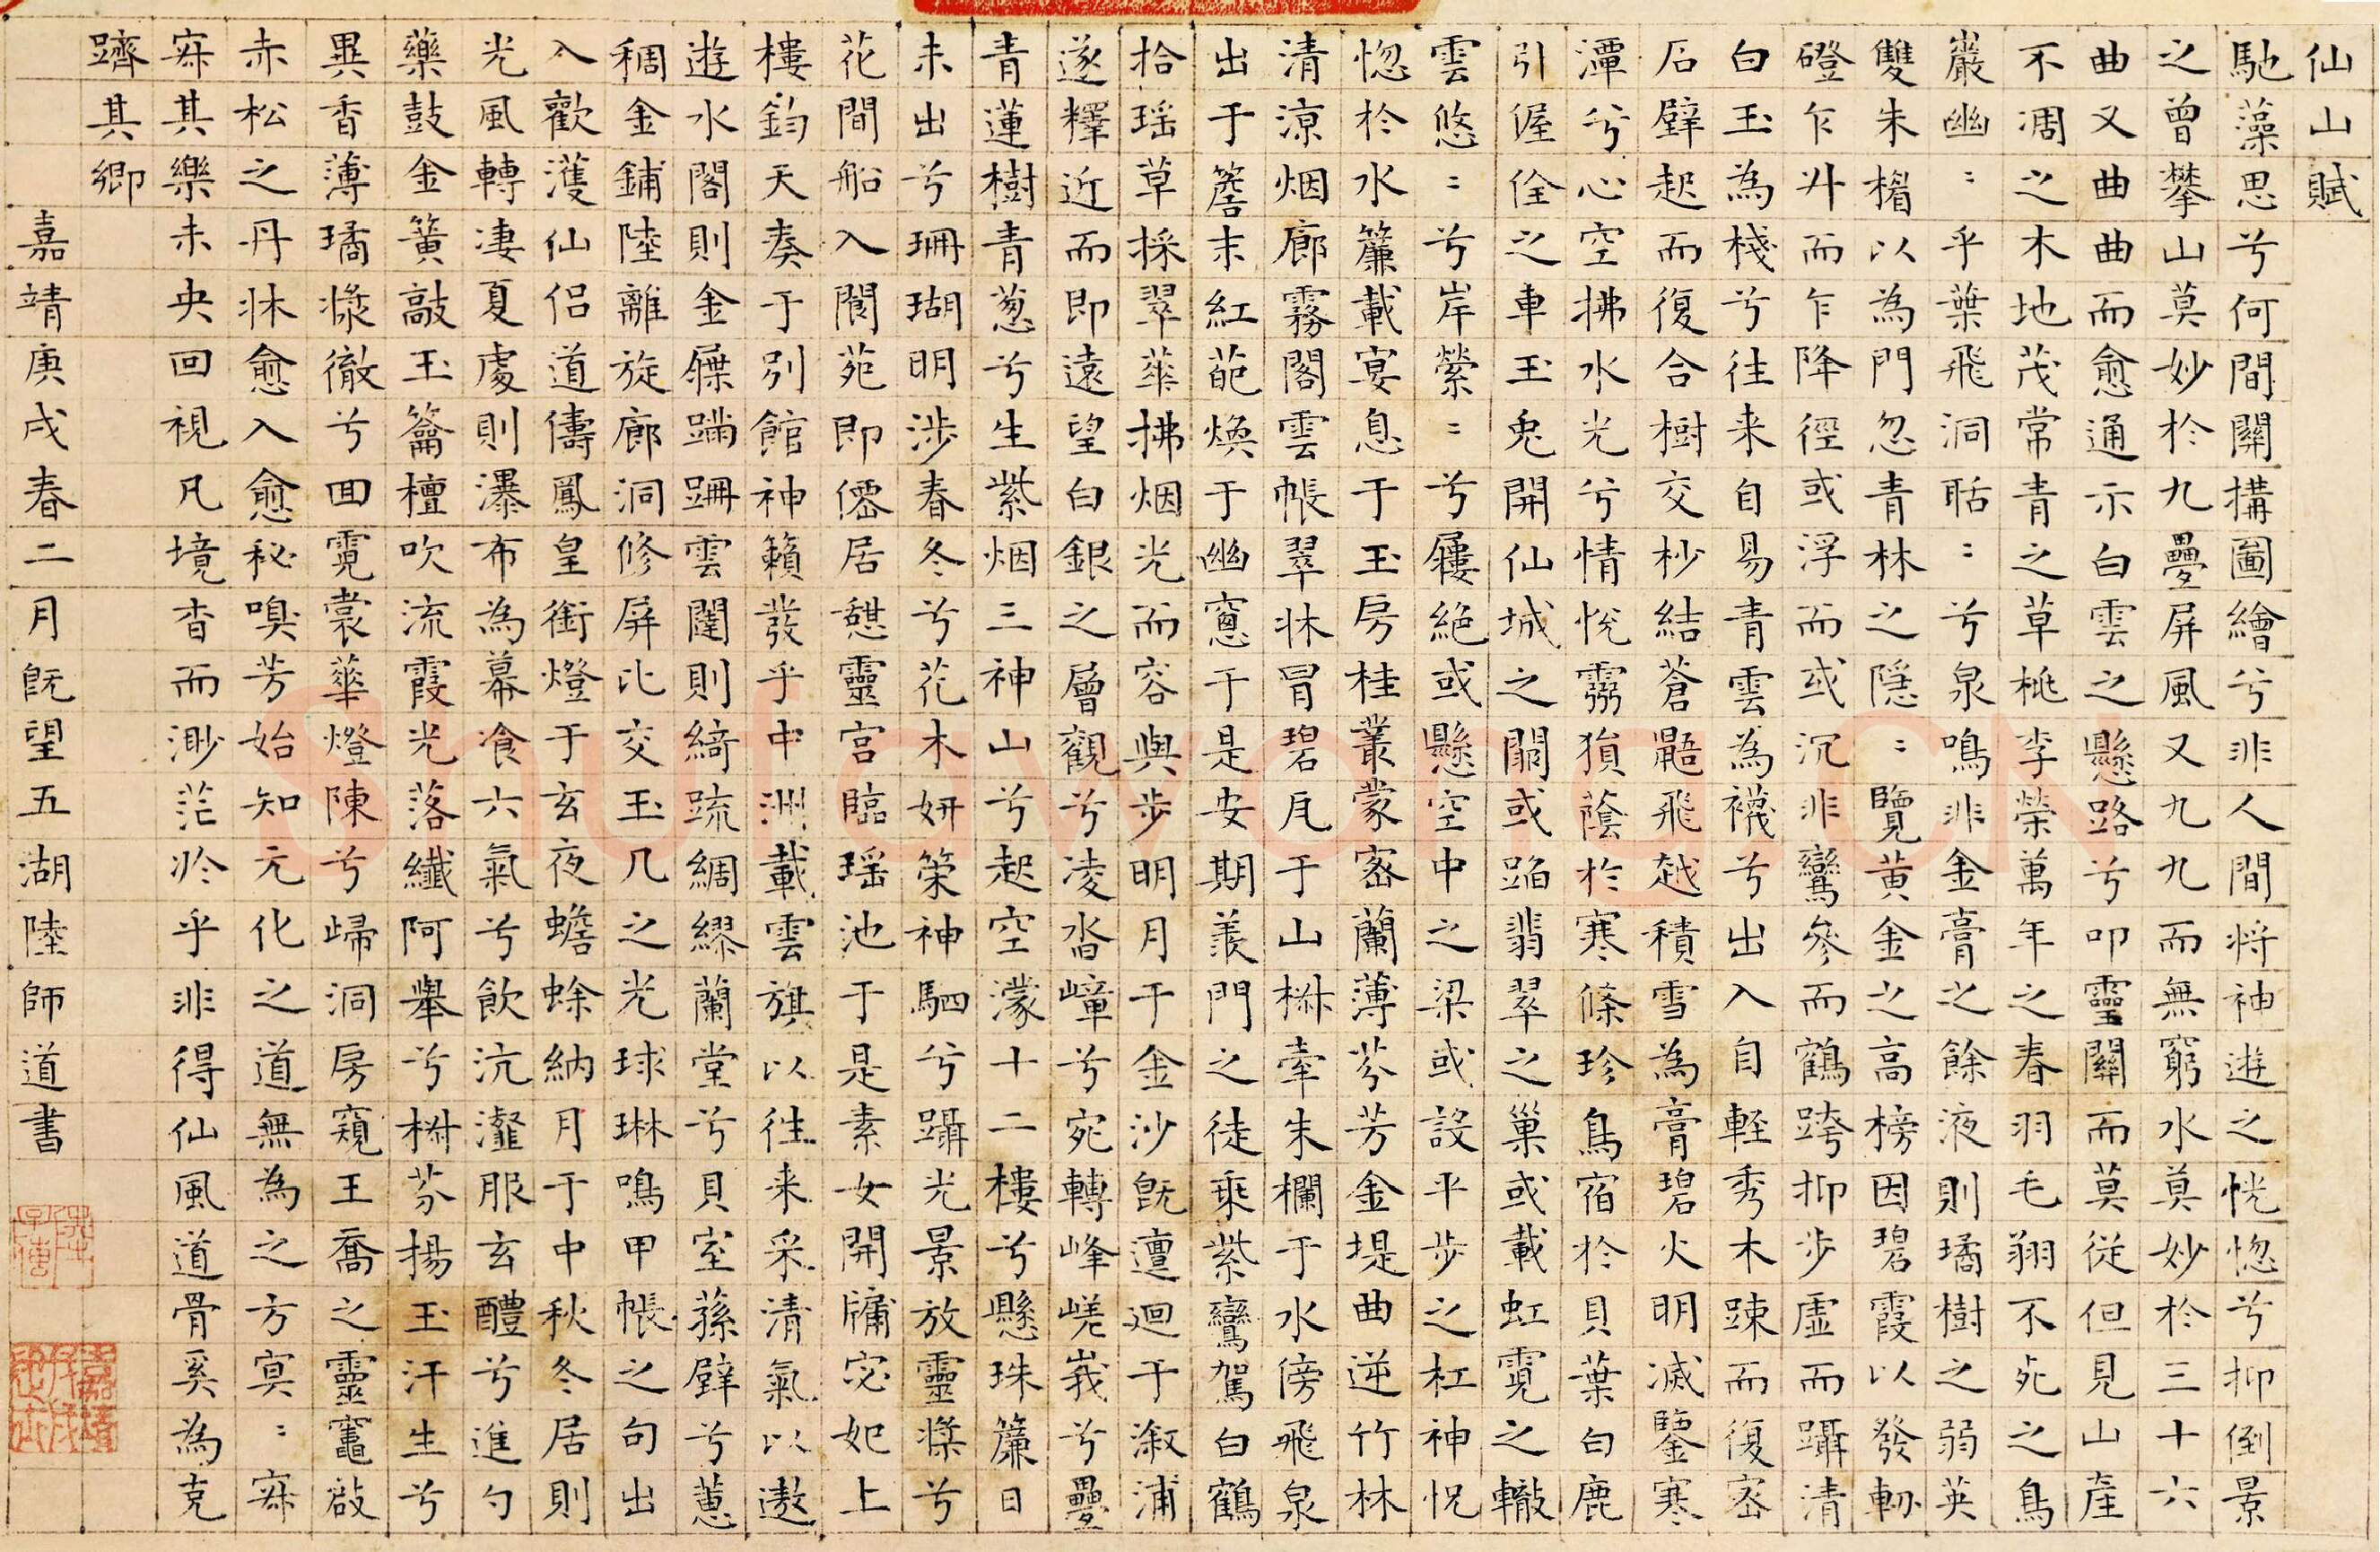 仙山賦
馳藻思兮何間關構圖繪兮非人間將神遊之恍惚兮抑倒景
之曾攀山莫妙於九疊屏風又九九而無窮水莫妙於三十六
曲又曲曲而愈通示白雲之懸路兮叩靈關而莫從但見山產
不凋之木地茂常青之草桃李榮萬年之春羽毛翔不死之鳥
巖幽=乎葉飛洞聒=兮泉鳴非金膏之餘液則璚樹之弱英
雙朱楣以為門忽青林之隱=覽黃金之高榜因碧霞以發軔
磴乍升而乍降徑或浮而或沉非鸞參而鶴跨抑步虛而躡清
白玉為棧兮往来自易青雲為襪兮出入自輕秀木踈而復密
石壁起而復合樹交杪結蒼鼯飛越積雪為膏碧火明滅鑒寒
潭兮心空拂水光兮情悅霧猿蔭於寒條珍鳥宿於貝葉白鹿
引偓佺之車玉兔開仙城之關或蹈翡翠之巢或載虹霓之轍
雲悠=兮岸縈=兮屨絕或懸空中之梁或設平步之杠神怳
惚於水簾載宴息于玉房桂叢蒙密蘭薄芬芳金堤曲逆竹林
清涼烟廊霧閣雲帳翠牀冒碧瓦于山椒牽朱欄于水傍飛泉
出于簷末紅葩煥于幽窻于是安期羨門之徒乘紫鸞駕白鶴
拾瑶草採翠華拂烟光而容與步明月于金沙旣邅迴于溆浦
遂釋近而即遠望白銀之層觀兮凌沓嶂兮宛轉峰嵯峩兮疊
青蓮樹青葱兮生紫烟三神山兮起空濛十二樓兮懸珠簾日
未出兮珊瑚明涉春冬兮花木妍榮神駟兮躡光景放靈槳兮
花間船入閬苑即僊居憩靈宮臨瑶池于是素女開牖宓妃上
樓鈞天奏于別館神籟發乎中洲載雲旗以往来采清氣以遨
遊水閣則金屧蹣跚雲闥則綺疏綢繆蘭堂兮貝室蓀壁兮蕙
稠金鋪陸離旋廊洞修屏比交玉几之光球琳鳴甲帳之句出
入歡濩仙侶道儔鳳皇銜燈于玄夜蟾蜍納月于中秋冬居則
光風轉凄夏處則瀑布為幕飡六氣兮飲沆瀣服玄醴兮進勺
藥鼓金簧敲玉籥檀吹流霞光落纖阿舉兮椒芬揚玉汗生兮
異香薄璚漿徹兮回霓裳華燈陳兮歸洞房窺王喬之靈竈啟
赤松之丹牀愈入愈秘嗅芳始知元化之道無為之方冥=寐
寐其樂未央回視凡境杳而渺茫於乎非得仙風道骨奚為克
躋其鄉
嘉靖庚戌春二月旣望五湖陸師道書